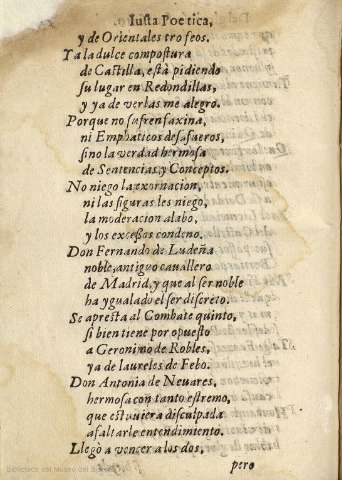 Iusta Poetica,
y de Orientales trofeos.
Y a la dulce compostura
de Castilla, està pidiendo
su lugar en Redondillas,
y ya de verlas me alegro.
Porque no sufren faxina,
ni Emphaticos desafueros,
sino la verdad hermosa
de Sentencias, y Conceptos.
No niego la exornacion,
ni las figuras les niego,
la moderacion alabo,
y los excessos condeno.
Don Fernando de Ludeña
noble, antiguo cauallero
de Madrid, y que al ser noble
ha ygualado el ser discreto.
Se apresta al Combate quinto,
si bien tiene por opuesto
a Geronimo de Robles,
ya de laureles de Febo.
Don Antonia de Neuares,
hermosa con tanto estremo,
que estuuiera disculpada
a faltarle entendimiento.
Llegò a vencer a los dos,
pero